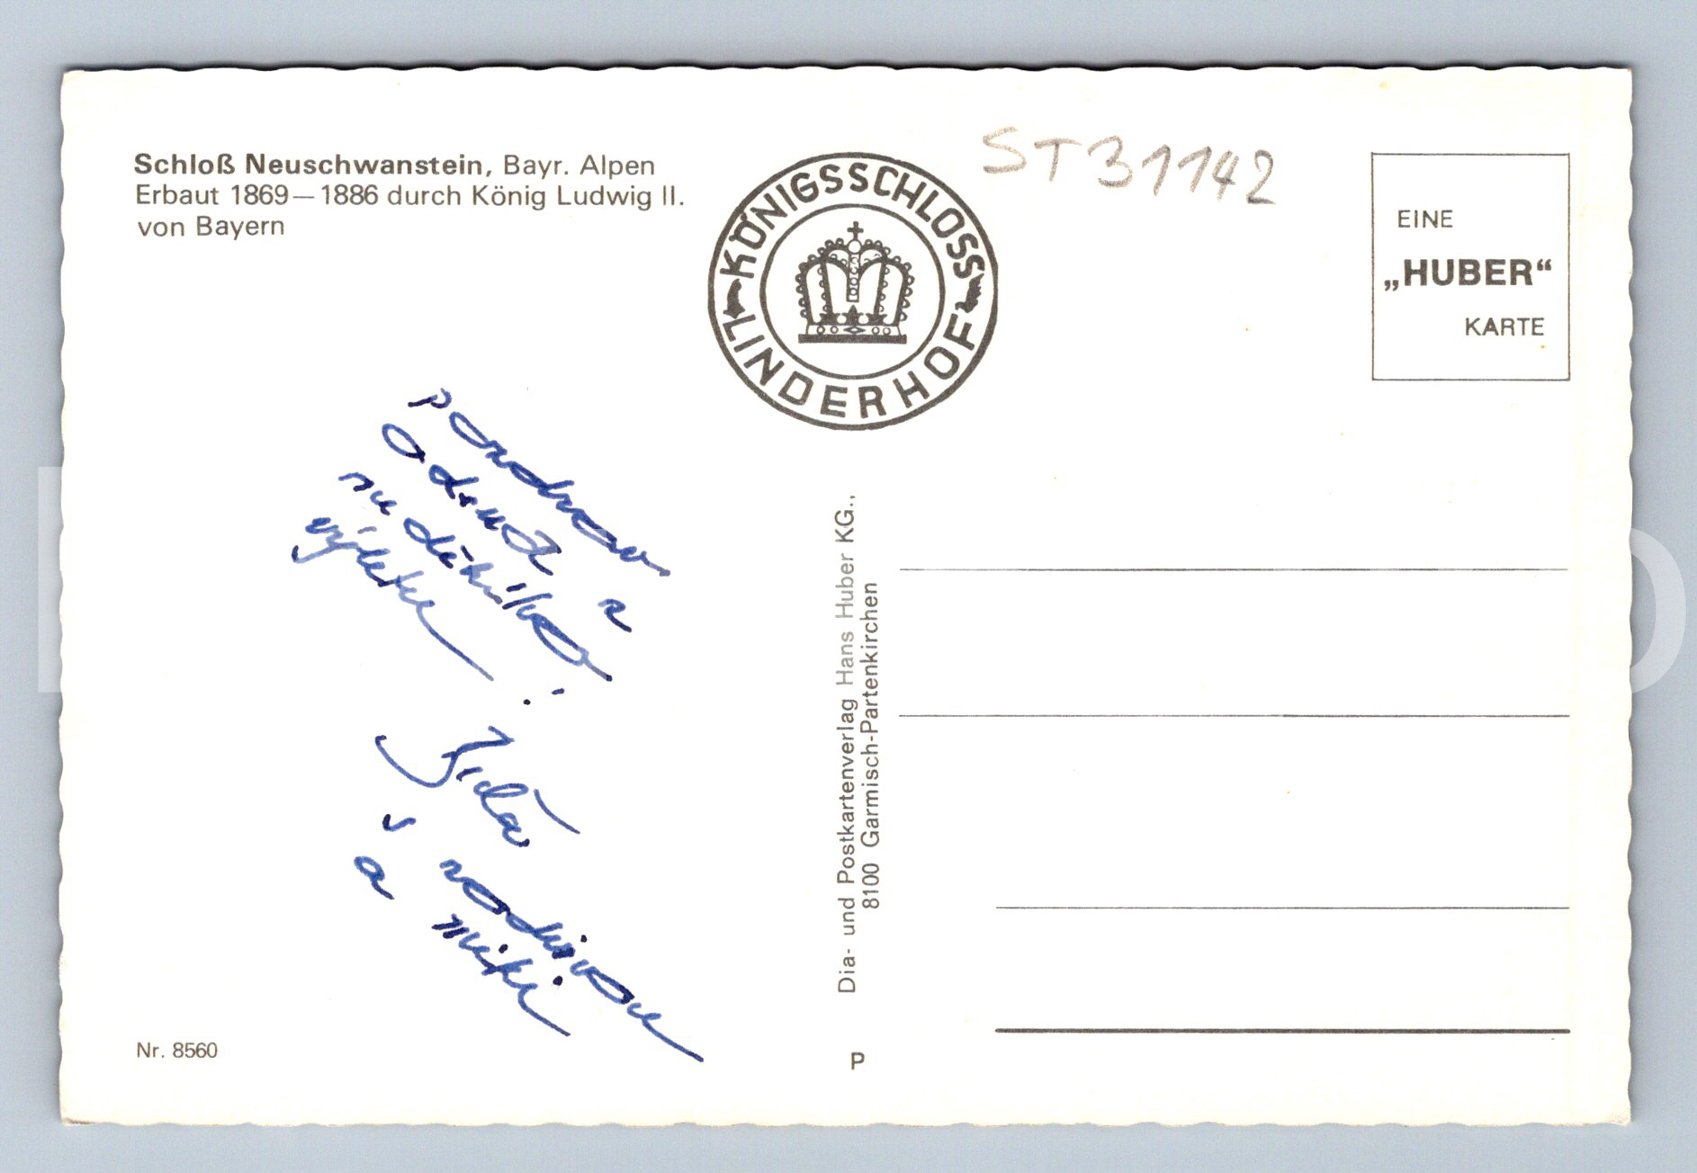 Schloß Neuschwanstein, Bayr. Alpen
Erbaut 1869—1886 durch König Ludwig II.
von Bayern
KÖNIGSSCHLOSS
LINDERHOF
ST31142
EINE
„HUBER“
KARTE
pozdrav
z
nedělního
výletu
rodinou
a
Dia- und Postkartenverlag Hans Huber KG.,
8100 Garmisch-Partenkirchen
Nr. 8560
P